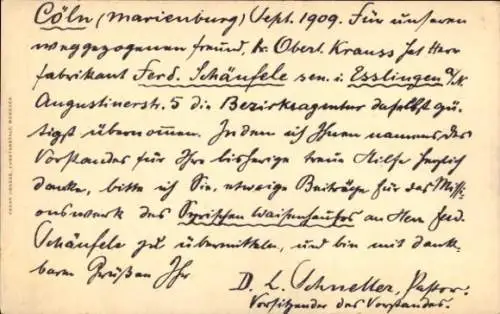 Cöln (Marienburg) Sept. 1909. Für unseren
weggezogenen Freund, Hr. Obert. Krauss hat Herr
Fabrikant Ferd. Schäufele sen. i. Esslingen a/N.
Augustinerstr. 5 die Bezirksagentur daselbst gü-
tigst übernommen. Indem ich Ihnen namens des
Vorstandes für Ihre bisherige treue Hilfe herzlich
danke, bitte ich Sie, etwaige Beiträge für das Missi-
onswerk des Syrischen Waisenhauses an Herr Ferd.
Schäufele zu übermitteln, und bin mit dank-
baren Grüßen Ihr
D. L. Schneller, Pastor.
Vorsitzender des Vorstandes.